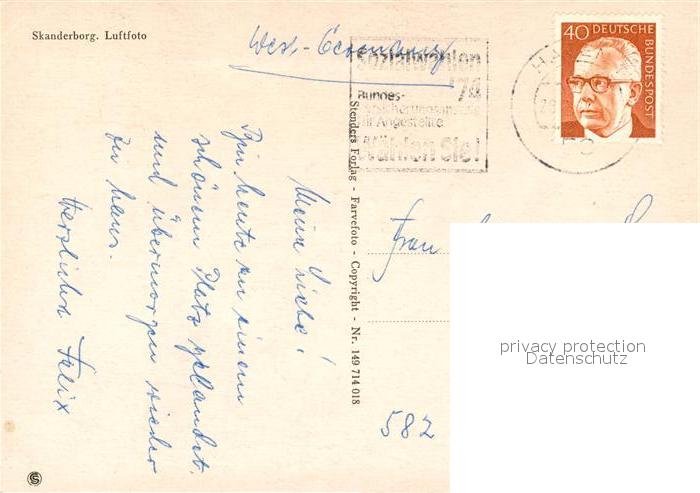 Skanderborg. Luftfoto
West-Germany
Sozialwahlen
'74
Bundes-
versicherungsanstalt
für Angestellte
Wählen Sie!
40 DEUTSCHE
BUNDESPOST
Stenders Forlag - Farvefoto - Copyright - Nr. 149 714 018
Meine Liebe!
Bin heute an einem
schönem Platz gelandet.
und übermorgen wieder
zu Haus.
Herzlichst Felix
Frau
582
privacy protection
Datenschutz